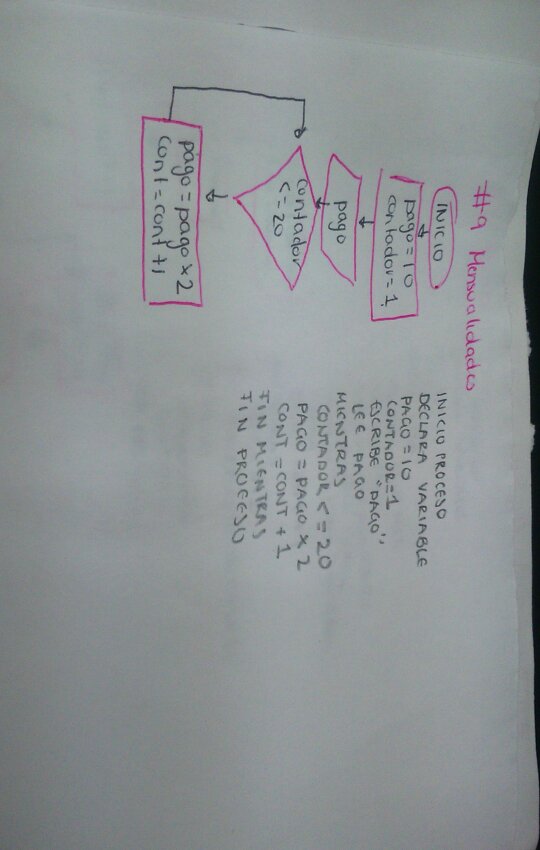 #9 Mensualidades
INICIO
pago = 10
contador = 1
pago
contador
<= 20
pago = pago x 2
cont = cont + 1
INICIO PROCESO
DECLARA VARIABLE
PAGO = 10
CONTADOR = 1
ESCRIBE "PAGO"
LEE PAGO
MIENTRAS
CONTADOR <= 20
PAGO = PAGO x 2
CONT = CONT + 1
FIN MIENTRAS
FIN PROCESO